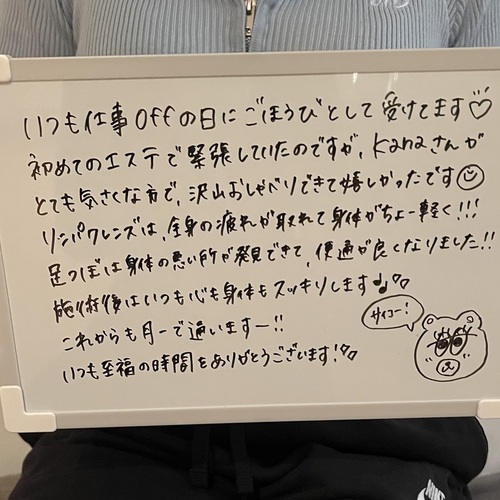 いつも仕事offの日にごほうびとして受けてます♡
初めてのエステで緊張していたのですが、Kanaさんが
とても気さくな方で、沢山おしゃべりできて嬉しかったです☺
リンパクレンズは、全身の疲れが取れて身体がちょー軽く!!!
足つぼは身体の悪い所が発見できて、便通が良くなりました!!
施術後はいつも心も身体もスッキリします♪
これからも月一で通いますー!!
サイコー!
いつも至福の時間をありがとうございます!